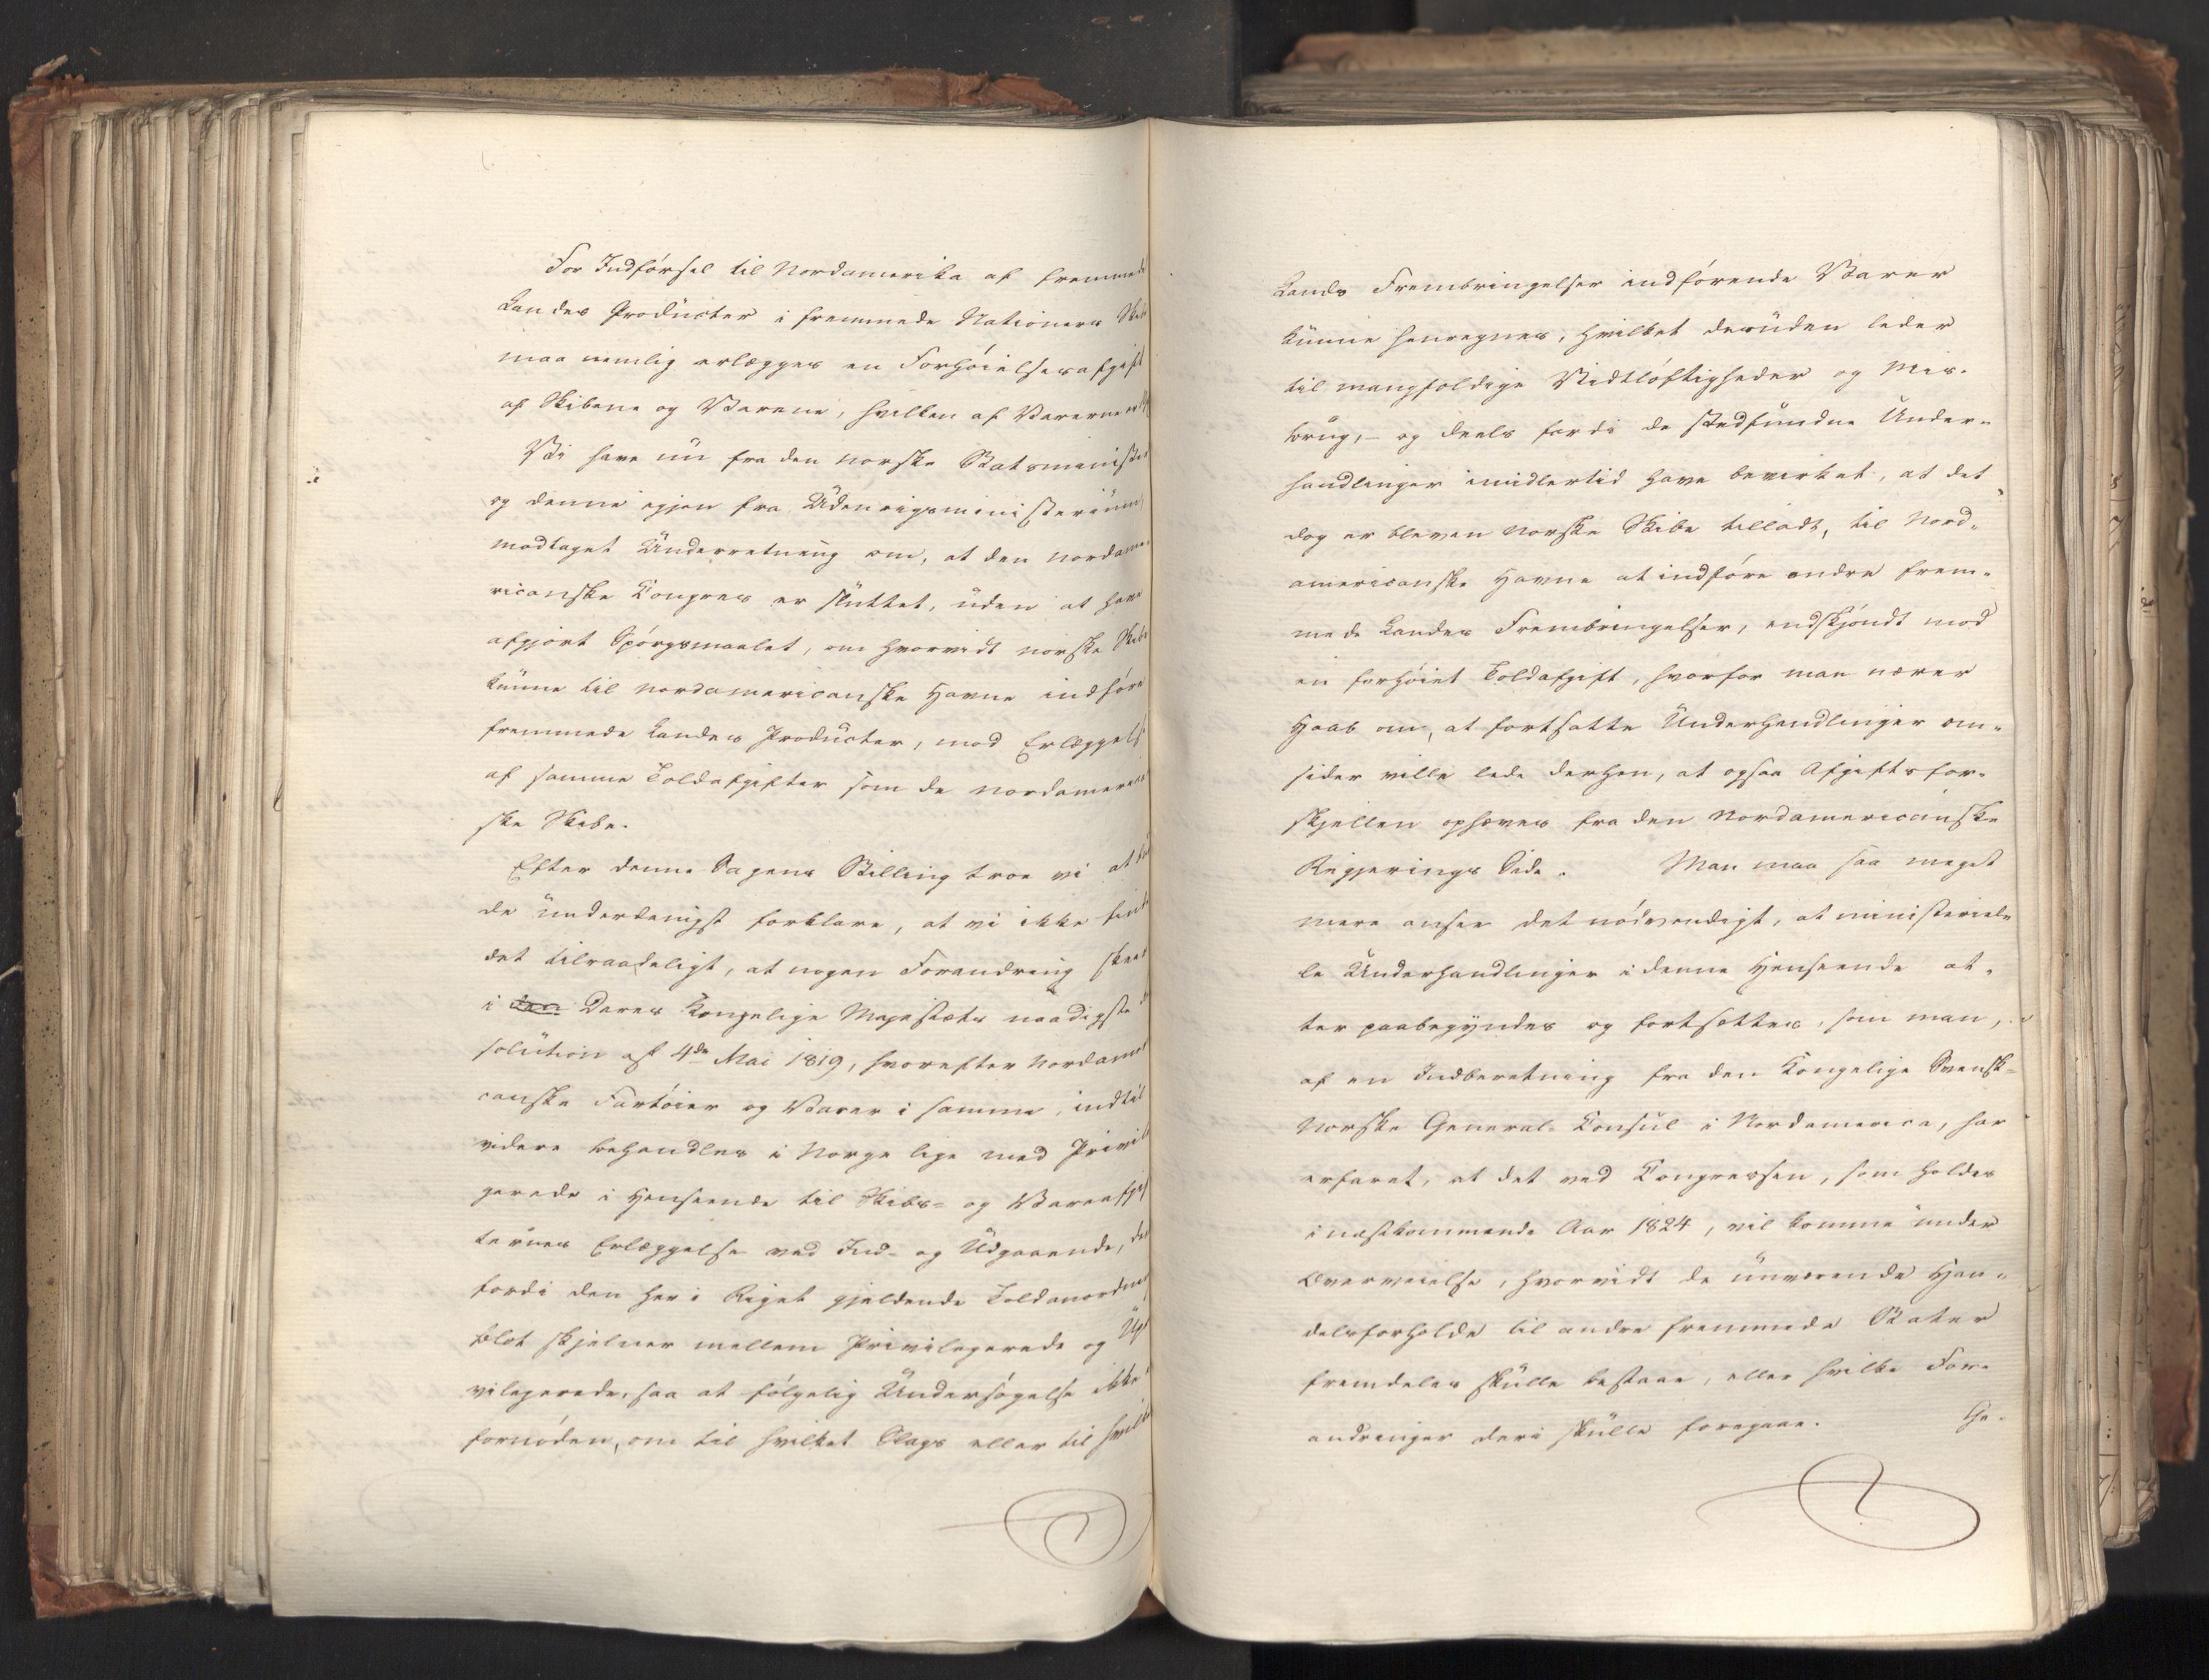 For Indførsel til Nordamerika af fremmede
Landes Producter i fremmede Nationers Skibe
maa nemlig erlægges en Forhøielsesafgift
af Skibene og Varerne, hvilken af Varerne er
Vi have nu fra den norske Statsminister
og denne igjen fra Udenrigsministerium
modtaget Underretning om, at den nordame-
ricanske Congres er sluttet, uden at have
afgjort Spørgsmaalet, om hvorvidt norske Skibe
kunne til nordamericanske Havne indføre
fremmede Landes Producter, mod Erlæggelse
af samme Toldafgifter som de nordamerican
ske Skibe.
Efter denne Sagens Stilling troe vi at
de underdanigst forklare, at vi ikke finde
det tilraadeligt, at nogen Forandring skeer
i den Deres Kongelige Majestæts naadigste
solution af 4de Mai 1819, hvorefter Nordameri
canske Fartøier og Varer i samme, indtil
videre behandles i Norge lige med Privili
gerede i Henseende til Skibs- og Vareafgif
ternes Erlæggelse ved Ind- og Udgaaende,
fordi den her i Riget gjeldende Toldanordning
blot skjelner mellem Privilegerede og Upri
vilegerede, saa at følgelig Undersøgelse ikke
fornøden, om til hvilket Slags eller til hvilke
Lands Frembringelser indførende Varer
kunne henregnes, hvilket desuden leder
til mangfoldige Vidtløftigheder og Mis-
brug, - og deels fordi de stedfundne Under-
handlinger imidlertid have bevirket, at det
dog er bleven norske Skibe tilladt, til Nord-
americanske Havne at indføre andre frem-
mede Landes Frembringelser, endskjøndt mod
en forhøiet Toldafgift, hvorfor man nærer
Haab om, at fortsatte Underhandlinger om-
sider ville lede derhen, at ogsaa Afgiftsfor-
skjellen ophæves fra den Nordamericanske
Regjerings Side. Man maa saa meget
mere ansee det nødvendigt, at ministeriel-
le Underhandlinger i denne Henseende at-
ter paabegyndes og fortsættes, som man,
af en Indberetning fra den Kongelige Svensk-
Norske General-Consul i Nordamerica, har
erfaret, at det ved Congressen, som holdes
i næstkommende Aar 1824, vil komme under
Overveielse, hvorvidt de unværende Han-
delsforholde til andre fremmede Stater
fremdeles skulle bestaae, eller hvilke For-
andringer deri skulle foregaae. Ge-